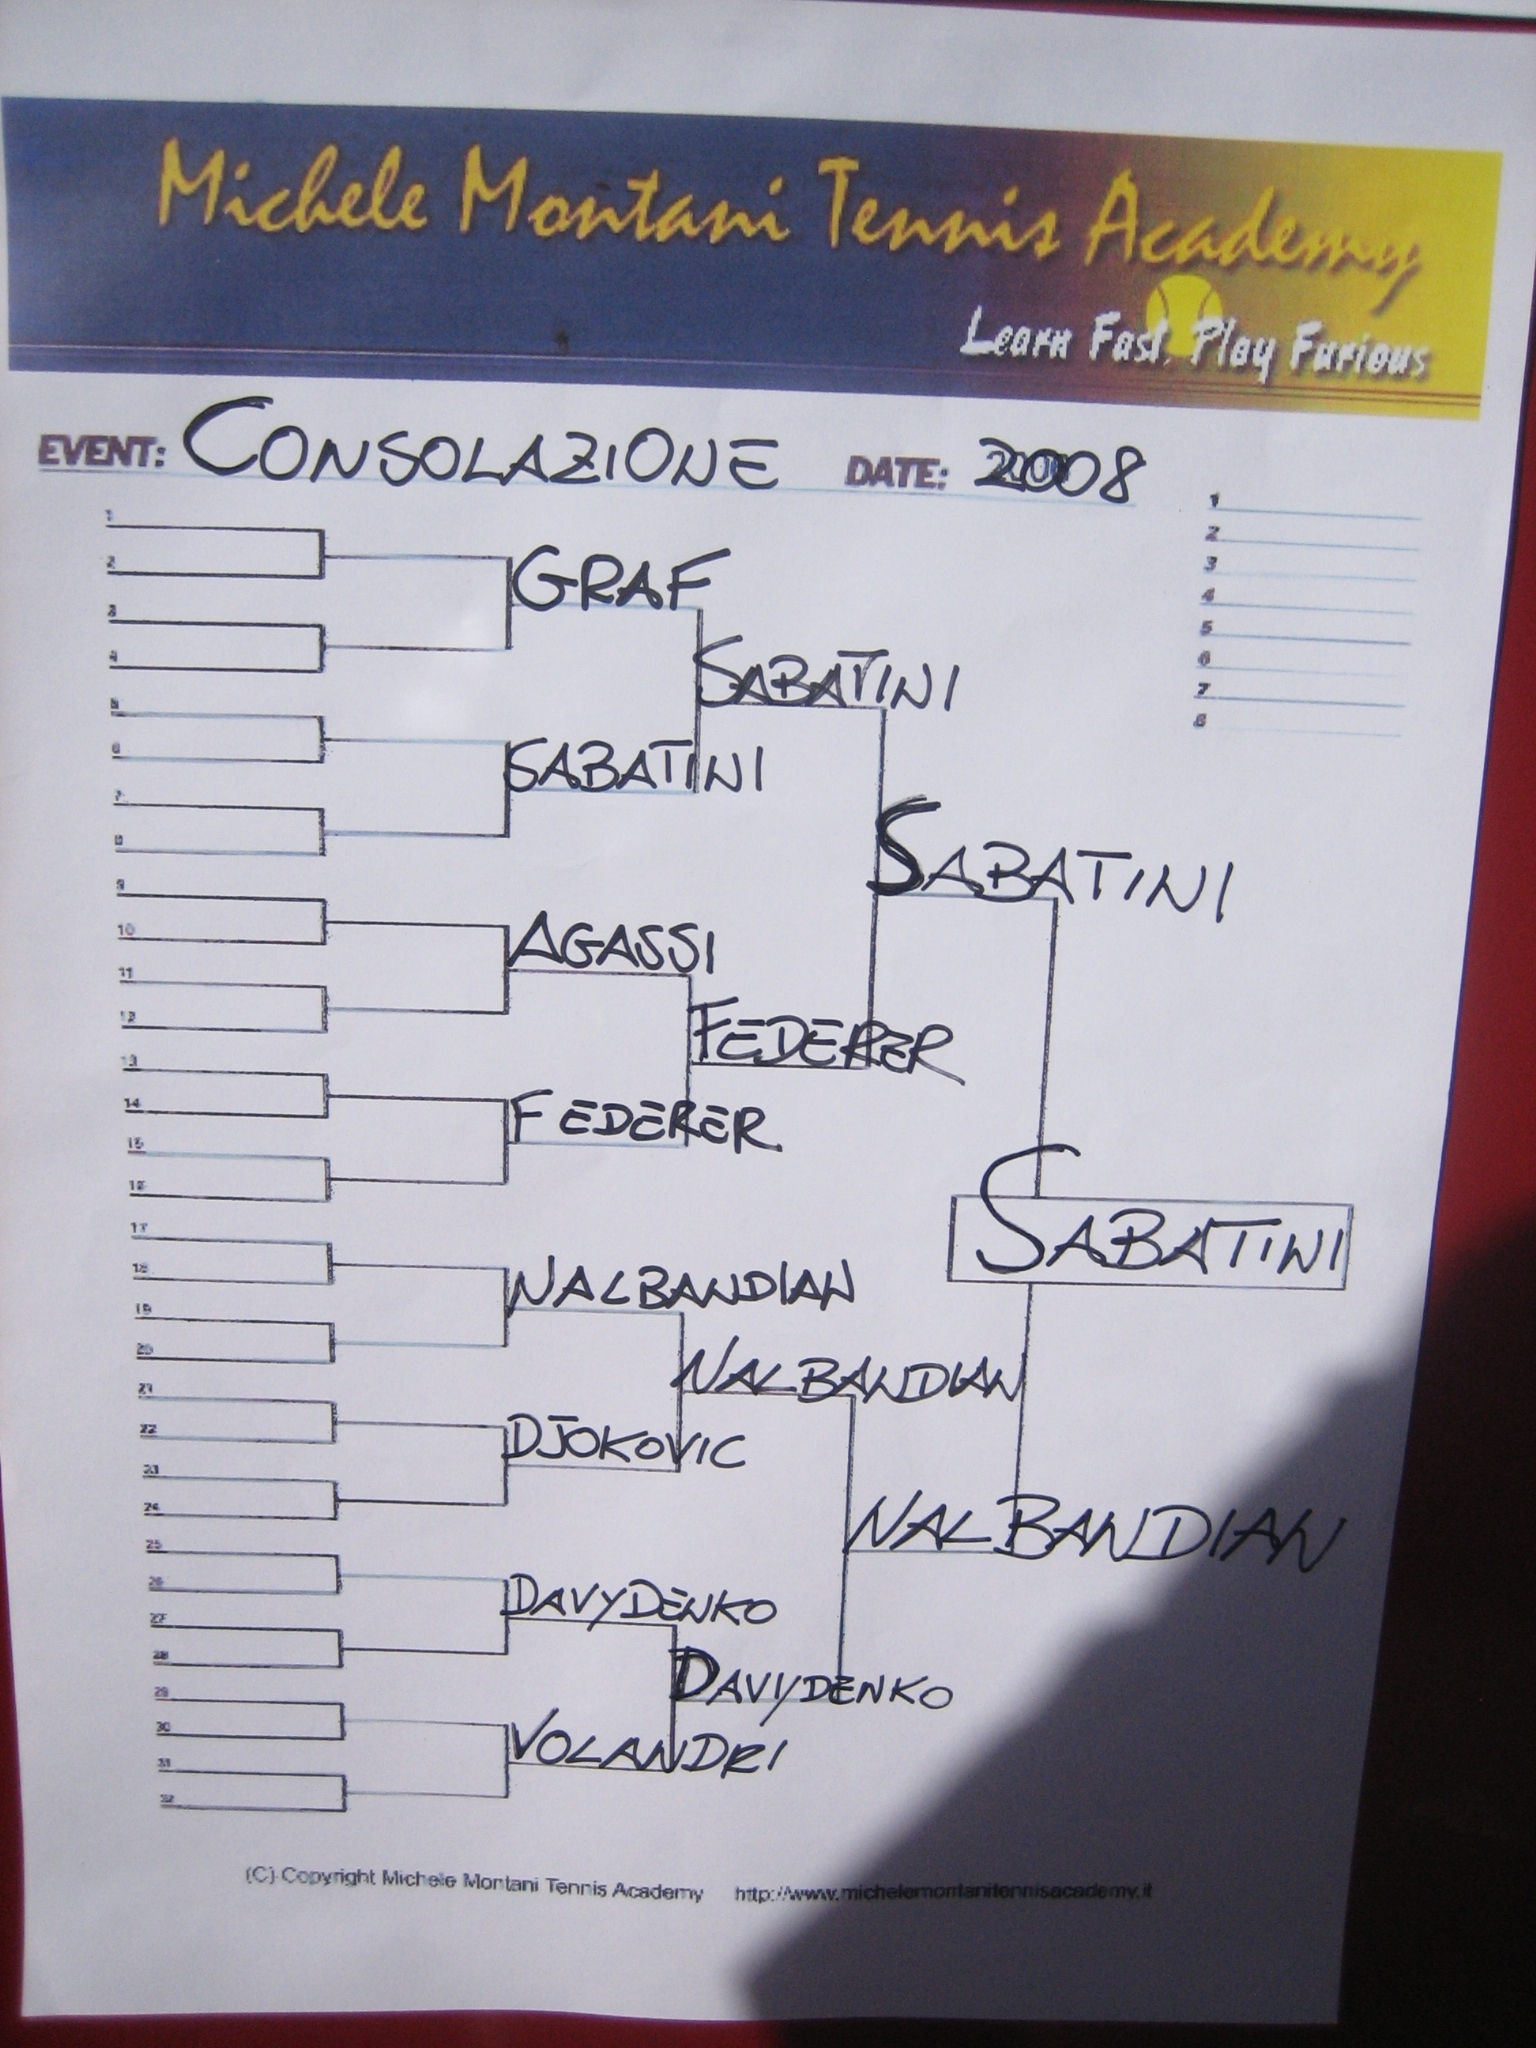 Michele Montani Tennis Academy
Learn Fast, Play Furious
EVENT: CONSOLAZIONE DATE: 2008
1
2
3
4
5
6
7
8
9
10
11
12
13
14
15
16
17
18
19
20
21
22
23
24
25
26
27
28
29
30
31
32
GRAF
SABATINI
AGASSI
FEDERER
NALBANDIAN
DJOKOVIC
DAVYDENKO
VOLANDRI
SABATINI
FEDERER
NALBANDIAN
DAVYDENKO
SABATINI
NALBANDIAN
SABATINI
1
2
3
4
5
6
7
8
(C) Copyright Michele Montani Tennis Academy http://www.michelemontanitennisacademy.it